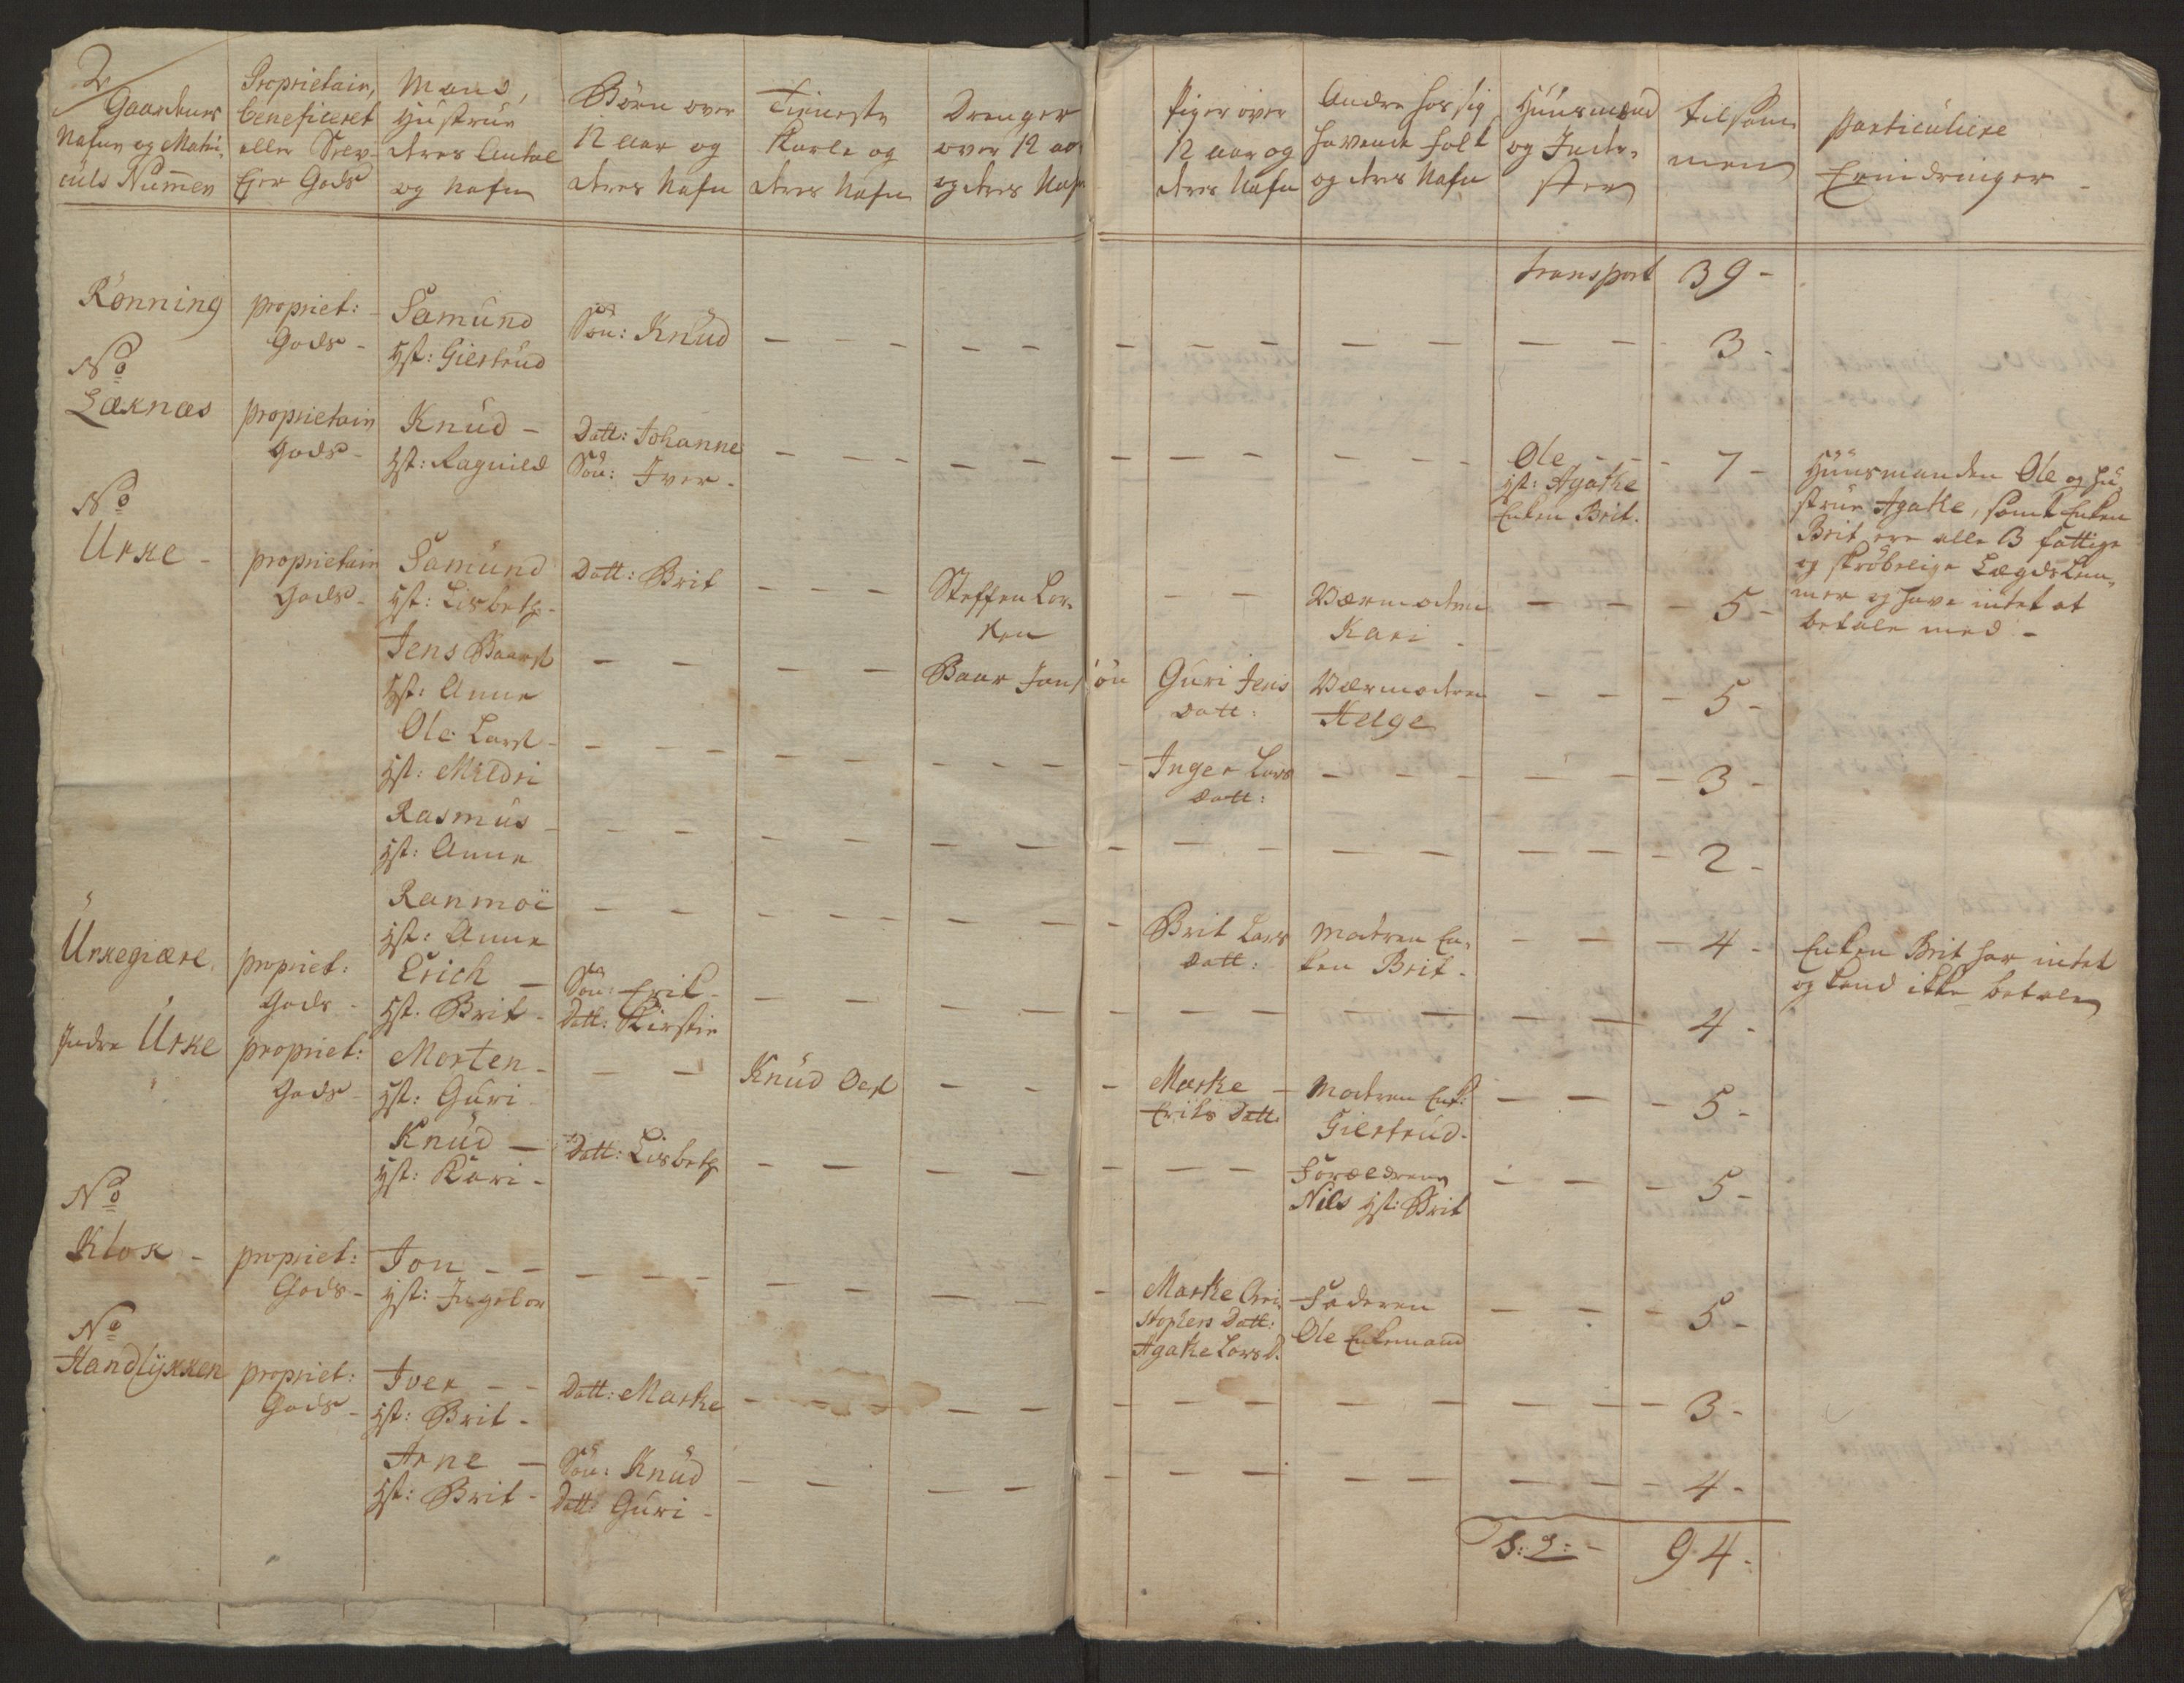 2
Gaardens
Nafne og Matri-
culs Numer
Proprietair,
beneficeret
eller Selv-
Ejer Gods
Mand,
Hustrue
deres Antal
og Nafne
Börn over
12 aar og
deres Nafne
Tieneste
Karle og
deres Nafne
Drenger
over 12 aar
og deres Nafn
Piger over
12 aar og
deres Nafne
Andre hos sig
havende folk
og deres Nafne
Huusmænd
og Inder-
ster
tilsam-
men
particuliere
Erindringer
Transport 39 -
Rønning propriet: Samund Søn: Knud - - - - - - - - - - 3 -
Gods - Hst: Giertrud
No
Læknæs proprietair Knud - Datt: Johanne - - - - - - - - Ole - - 7 -
Gods - Hst: Ragnild Søn: Iver - Hst: Agathe
Enken Brit.
Huusmanden Ole og Hu-
strue Agathe, samt Enken
Brit ere alle 3 fattige
og skröbelige Lægdslem-
mer og have intet at
betale med -
No
Urke - proprietair Samund Datt: Brit - - - Steffen Lar- - - Værmoderen - - - 5 -
Gods - Hst: Lisbeth - sen Kari -
Jens Baarst - - - - Baar Jens søn Guri Jens Værmoderen - - - 5 -
Hst: Anne Datt: Helge
Ole Larst - - - - - - - - - Inger Lars - - - - - - 3 -
Hst: Mildri Datt:
Rasmus - - - - - - - - - - - - - - 2 -
Hst: Anne
Ranmoi - - - - - - - - Brit Lars Moderen En- - - - 4 -
Hst: Anne Datt: ken Brit -
Enken Brit har intet
og kand ikke betale
Urkegiære propriet: Erich - Søn: Erik - - - - - - - - - - - - 4 -
Gods - Hst. Brit - Datt: Kirstie
Indre Urke propriet: Morten - - - Knud Oest - - - Marthe - Moderen Enk: - - - 5 -
Gods - Hst: Guri - Eriks Datt: Giertrud -
Knud - Datt: Lisbeth - - - - - - - Forældrene - - - 5 -
Hst: Kari - Nils Hst: Brit
No
Klok - propriet: Jon - - - - - - - - - - Marthe Chri- Faderen - - - 5 -
Gods - Hst: Ingebor stophers Datt: Ole Enkemand
Agathe Lars D.
No
Handlykken propriet: Iver - - Datt: Marthe - - - - - - - - - - - - 3 -
Gods - Hst: Brit -
Arne - Søn: Knud - - - - - - - - - - - - 4 -
Hst: Brit - Datt: Guri -
94 -